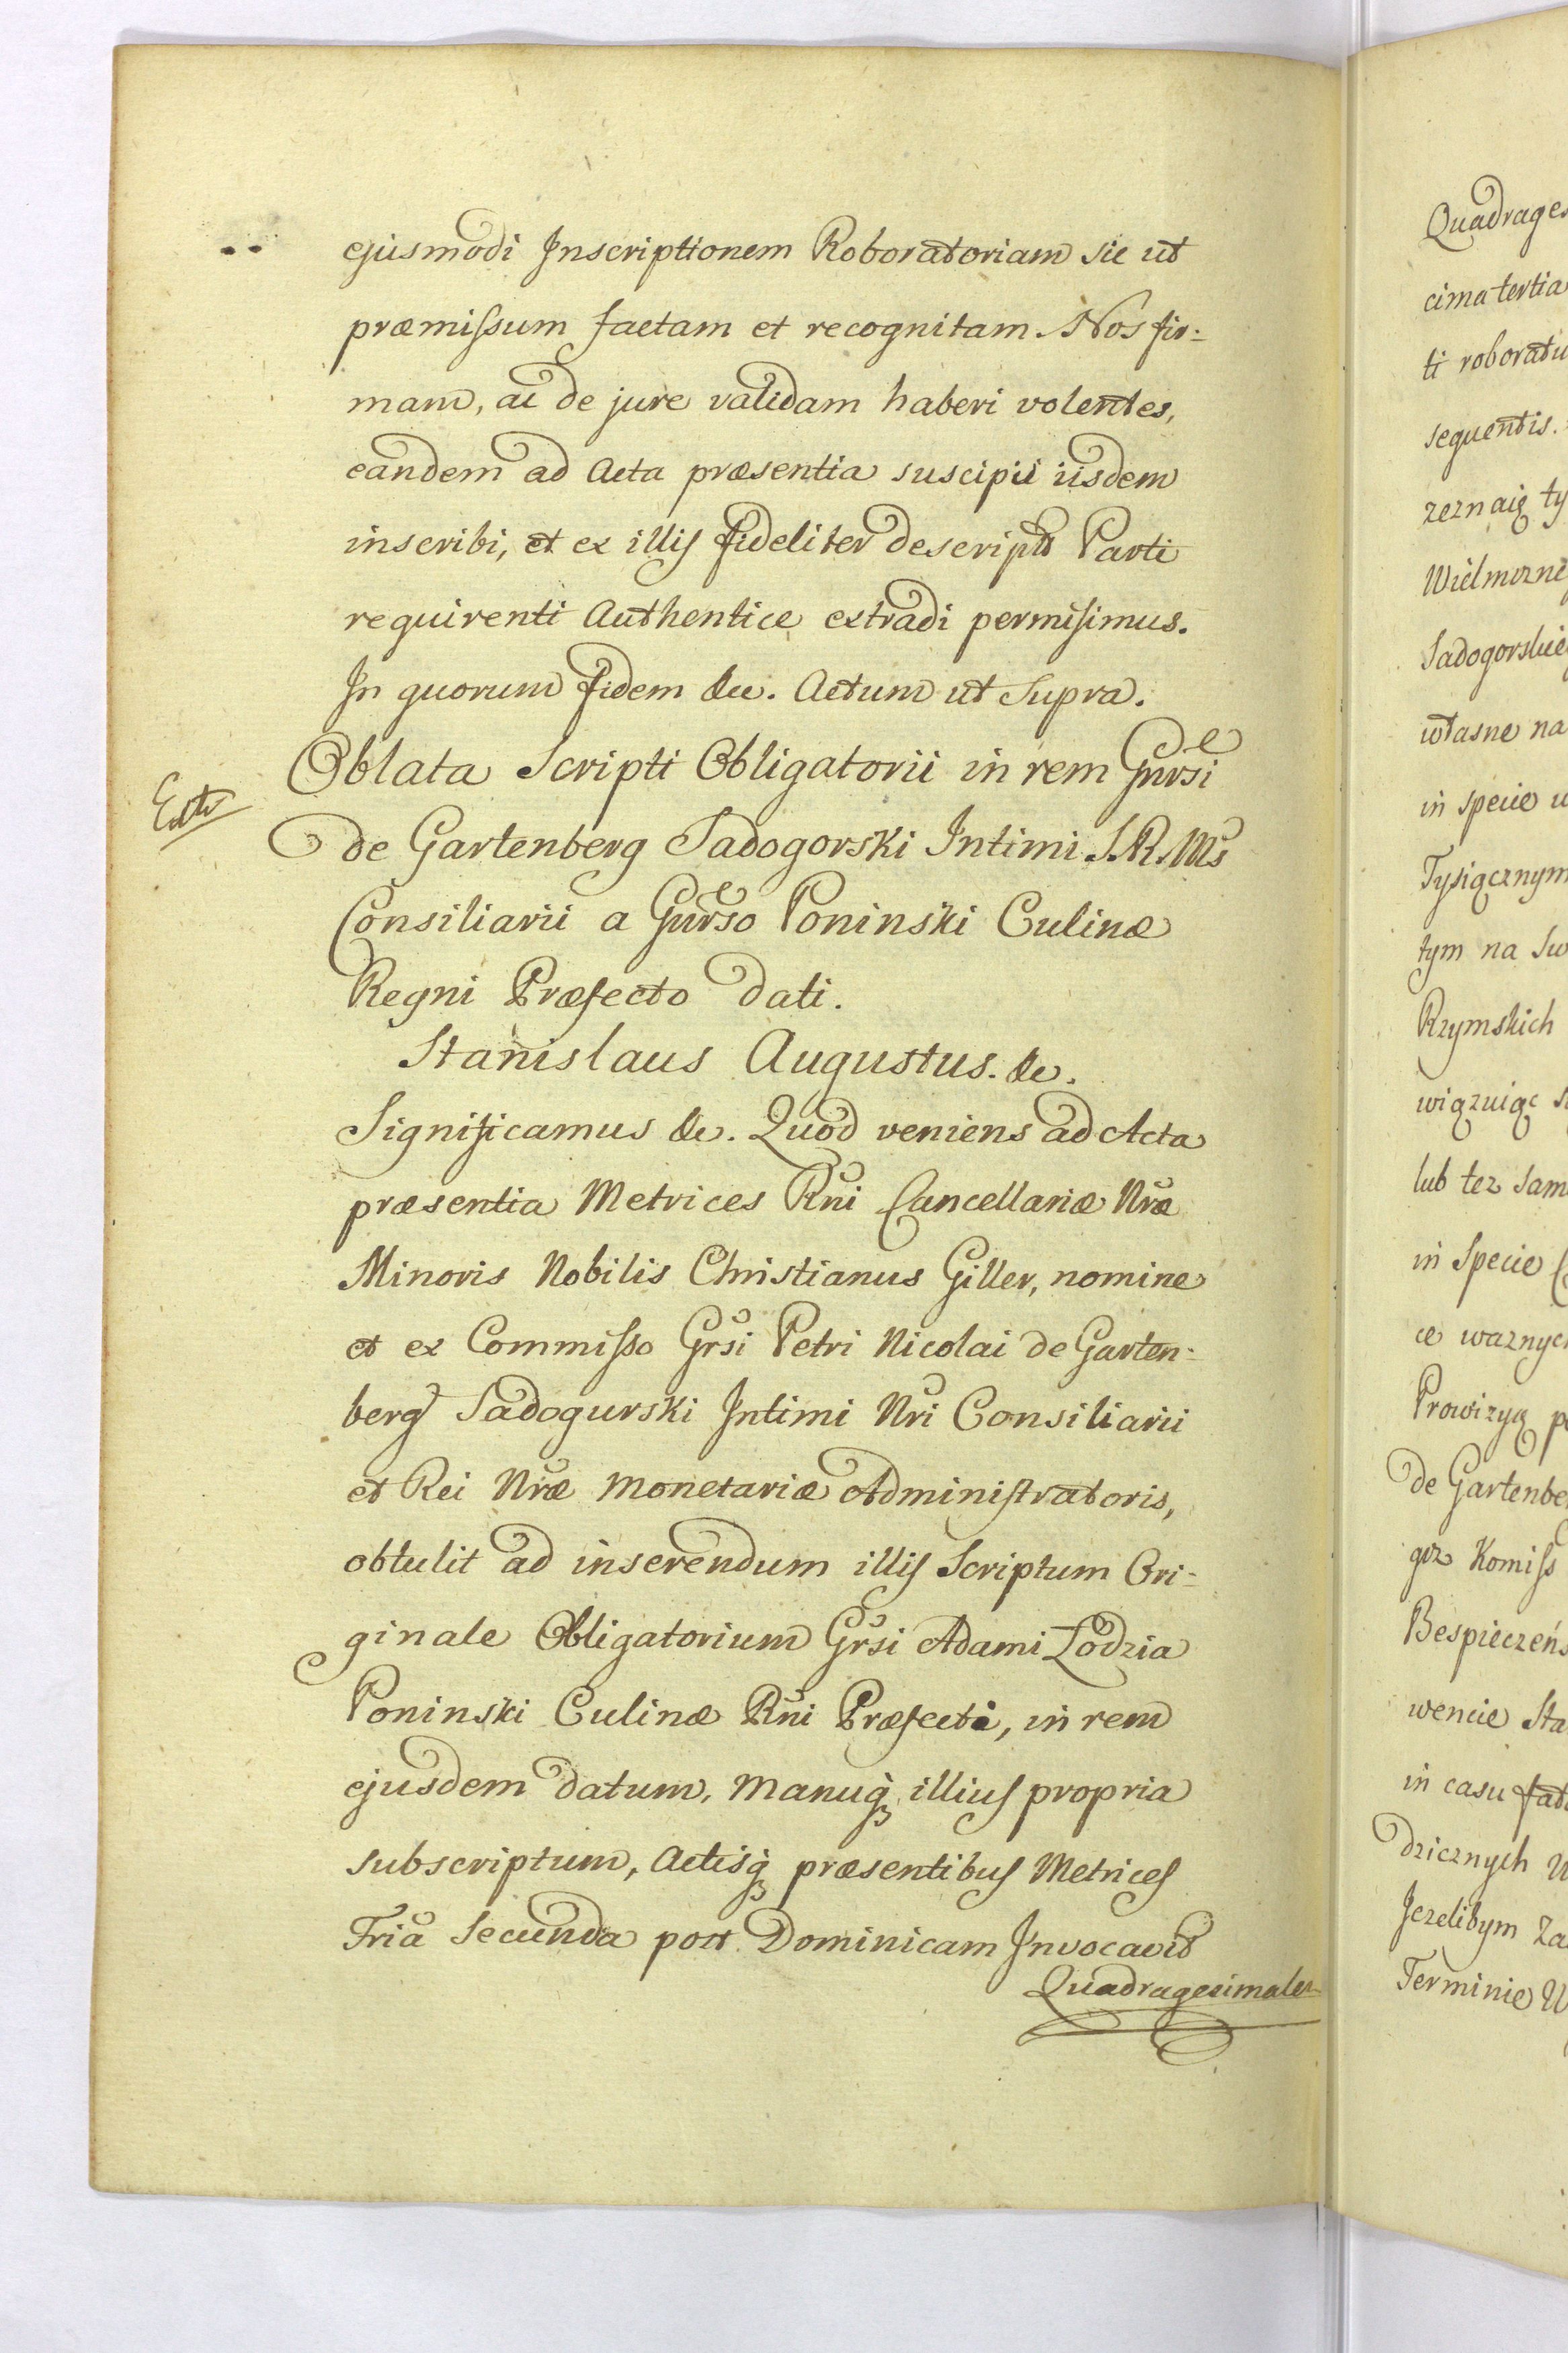 ejusmodi Inscriptionem Roboratoriam sic ut
præmissum factam et recognitam Nos fir-
mam, ac de jure validam haberi volentes,
eandem ad Acta præsentia suscipii iisdem
inscribi, et ex illis fideliter descript Parti
requirenti Authentice extradi permisimus.
In quorum fidem &c. Actum ut Supra.
Oblata Scripti Obligatorii in rem Gnrsi
de Gartenberg Sadogorski Intimi S.R.Ms
Consiliarii a Gnrso Poninski Culinæ
Regni Præfecto dati.
Stanislaus Augustus. &c.
Significamus &c. Quod veniens ad Acta
præsentia Metrices Rni Cancellariæ Nræ
Minoris Nobilis Christianus Giller, nomine
et ex Commisso Grsi Petri Nicolai de Garten-
berg Sadogurski Intimi Nri Consiliarii
et Rei Nræ Monetariæ Administratoris,
obtulit ad inserendum illis Scriptum Ori-
ginale Obligatorium Grsi Adami Łodzia
Poninski Culinæ Rni Præfecti, in rem
ejusdem datum, Manuq illius propria
subscriptum, Actisq præsentibus Metrices
Fria Secunda post Dominicam Invocavit
Quadragesimalem
Quadrages
cima tertia
ti roboratu
sequentis.
zeznaię ty
Wielmozne
Sadogorskie
własne na
in specie u
Tysiącznym
tym na Sw
Rzymskich
wiązuiąc s
lub tez sam
in Specie
ce waznych
Prowizyą p
de Gartenbe
goz Komiss
Bespieczeńs
wencie Sta
in casu fat
dzicznych U
Jezelibym Za
Terminie U